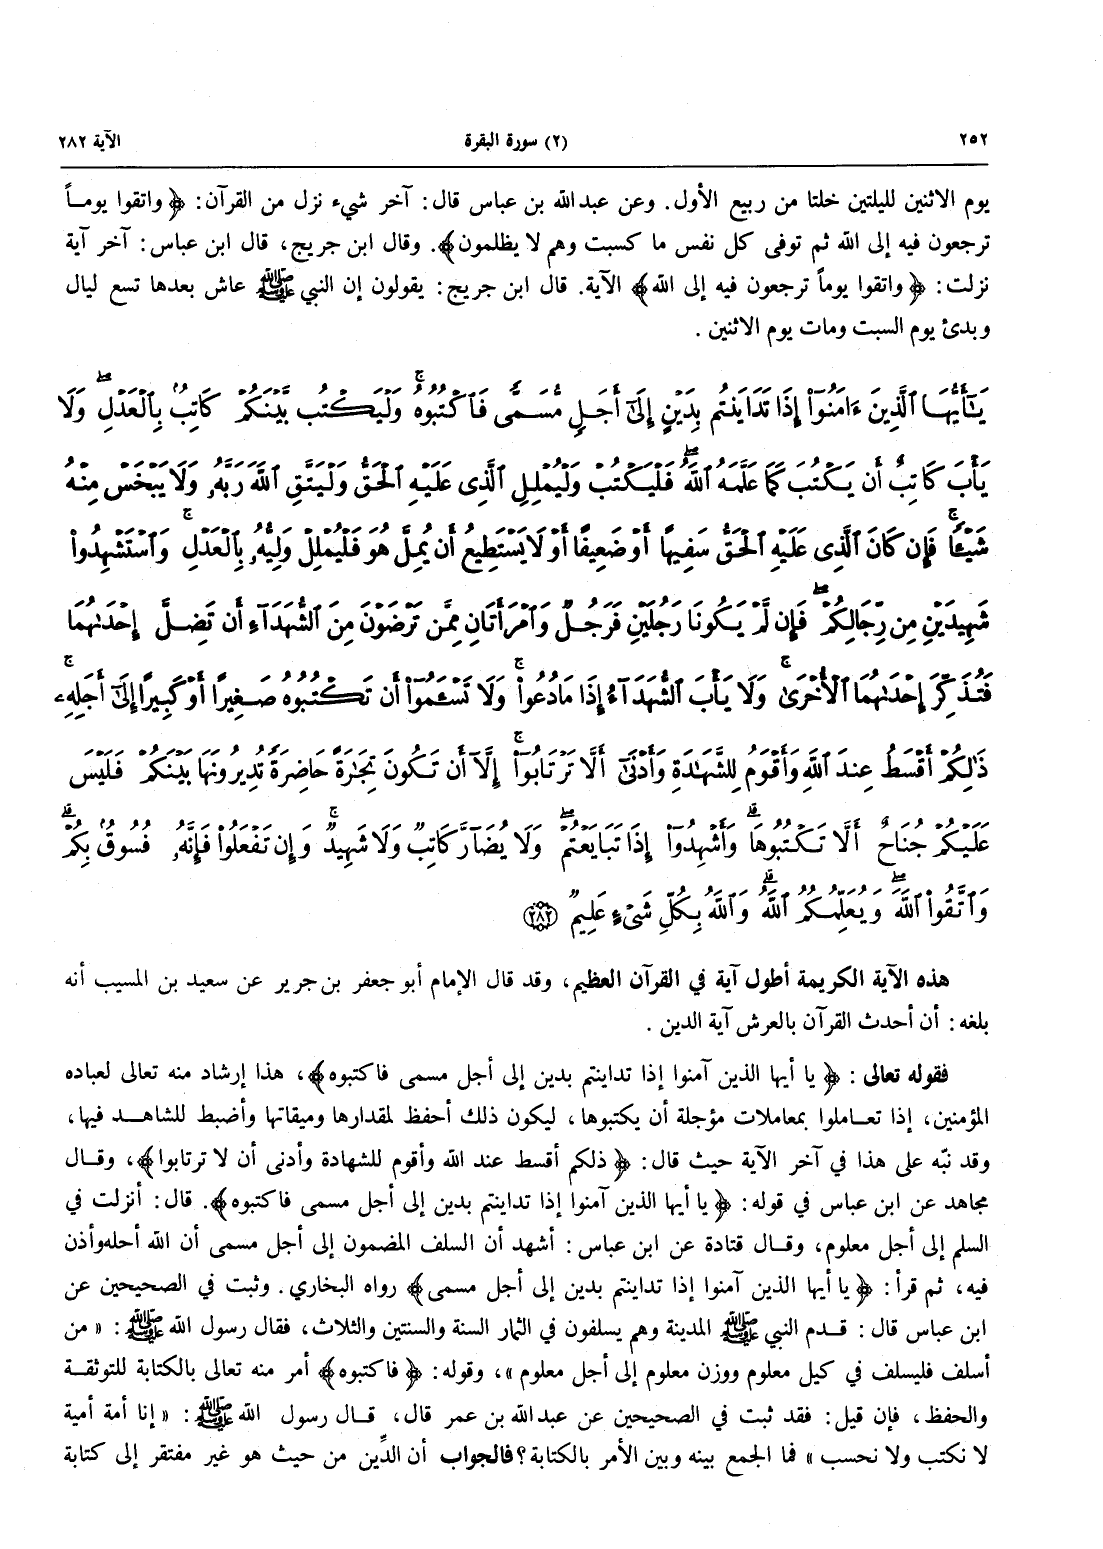 ٢٥٢ (٢) سورة البقرة الآية ٢٨٢
يوم الاثنين لليلتين خلتا من ربيع الأول. وعن عبدالله بن عباس قال: آخر شيء نزل من القرآن: ﴿واتقوا يوماً
ترجعون فيه إلى الله ثم توفى كل نفس ما كسبت وهم لا يظلمون﴾. وقال ابن جريج، قال ابن عباس: آخر آية
نزلت: ﴿واتقوا يوماً ترجعون فيه إلى الله﴾ الآية. قال ابن جريج: يقولون إن النبي ﷺ عاش بعدها تسع ليال
وبدئ يوم السبت ومات يوم الاثنين .
يَـٰٓأَيُّهَا ٱلَّذِينَ ءَامَنُوٓا۟ إِذَا تَدَايَنتُم بِدَيْنٍ إِلَىٰٓ أَجَلٍ مُّسَمًّى فَٱكْتُبُوهُ ۚ وَلْيَكْتُب بَّيْنَكُمْ كَاتِبٌۢ بِٱلْعَدْلِ ۖ وَلَا
يَأْبَ كَاتِبٌ أَن يَكْتُبَ كَمَا عَلَّمَهُ ٱللَّهُ ۖ فَلْيَكْتُبْ وَلْيُمْلِلِ ٱلَّذِى عَلَيْهِ ٱلْحَقُّ وَلْيَتَّقِ ٱللَّهَ رَبَّهُۥ وَلَا يَبْخَسْ مِنْهُ
شَيْـًٔا ۚ فَإِن كَانَ ٱلَّذِى عَلَيْهِ ٱلْحَقُّ سَفِيهًا أَوْ ضَعِيفًا أَوْ لَا يَسْتَطِيعُ أَن يُمِلَّ هُوَ فَلْيُمْلِلْ وَلِيُّهُۥ بِٱلْعَدْلِ ۚ وَٱسْتَشْهِدُوا۟
شَهِيدَيْنِ مِن رِّجَالِكُمْ ۖ فَإِن لَّمْ يَكُونَا رَجُلَيْنِ فَرَجُلٌ وَٱمْرَأَتَانِ مِمَّن تَرْضَوْنَ مِنَ ٱلشُّهَدَآءِ أَن تَضِلَّ إِحْدَىٰهُمَا
فَتُذَكِّرَ إِحْدَىٰهُمَا ٱلْأُخْرَىٰ ۚ وَلَا يَأْبَ ٱلشُّهَدَآءُ إِذَا مَا دُعُوا۟ ۚ وَلَا تَسْـَٔمُوٓا۟ أَن تَكْتُبُوهُ صَغِيرًا أَوْ كَبِيرًا إِلَىٰٓ أَجَلِهِۦ ۚ
ذَٰلِكُمْ أَقْسَطُ عِندَ ٱللَّهِ وَأَقْوَمُ لِلشَّهَـٰدَةِ وَأَدْنَىٰٓ أَلَّا تَرْتَابُوٓا۟ ۚ إِلَّآ أَن تَكُونَ تِجَـٰرَةً حَاضِرَةً تُدِيرُونَهَا بَيْنَكُمْ فَلَيْسَ
عَلَيْكُمْ جُنَاحٌ أَلَّا تَكْتُبُوهَا ۗ وَأَشْهِدُوٓا۟ إِذَا تَبَايَعْتُمْ ۖ وَلَا يُضَآرَّ كَاتِبٌ وَلَا شَهِيدٌ ۚ وَإِن تَفْعَلُوا۟ فَإِنَّهُۥ فُسُوقٌۢ بِكُمْ ۗ
وَٱتَّقُوا۟ ٱللَّهَ ۖ وَيُعَلِّمُكُمُ ٱللَّهُ ۗ وَٱللَّهُ بِكُلِّ شَىْءٍ عَلِيمٌ ﴿٢٨٢﴾
هذه الآية الكريمة أطول آية في القرآن العظيم، وقد قال الإمام أبو جعفر بن جرير عن سعيد بن المسيب أنه
بلغه: أن أحدث القرآن بالعرش آية الدين .
فقوله تعالى : ﴿يا أيها الذين آمنوا إذا تداينتم بدين إلى أجل مسمى فاكتبوه﴾، هذا إرشاد منه تعالى لعباده
المؤمنين، إذا تعـاملوا بمعاملات مؤجلة أن يكتبوها، ليكون ذلك أحفظ لمقدارها وميقاتها وأضبط للشاهـد فيها،
وقد نبّه على هذا في آخر الآية حيث قال: ﴿ذلكم أقسط عند الله وأقوم للشهادة وأدنى أن لا ترتابوا﴾، وقـال
مجاهد عن ابن عباس في قوله: ﴿يا أيها الذين آمنوا إذا تداينتم بدين إلى أجل مسمى فاكتبوه﴾. قال: أنزلت في
السلم إلى أجل معلوم، وقـال قتادة عن ابن عباس: أشهد أن السلف المضمون إلى أجل مسمى أن الله أحله وأذن
فيه، ثم قرأ: ﴿يا أيها الذين آمنوا إذا تداينتم بدين إلى أجل مسمى﴾ رواه البخاري. وثبت في الصحيحين عن
ابن عباس قال: قـدم النبي ﷺ المدينة وهم يسلفون في الثمار السنة والسنتين والثلاث، فقال رسول الله ﷺ : «من
أسلف فليسلف في كيل معلوم ووزن معلوم إلى أجل معلوم»، وقوله: ﴿فاكتبوه﴾ أمر منه تعالى بالكتابة للتوثقـة
والحفظ، فإن قيل: فقد ثبت في الصحيحين عن عبدالله بن عمر قال، قـال رسول الله ﷺ : «إنا أمة أمية
لا نكتب ولا نحسب» فما الجمع بينه وبين الأمر بالكتابة؟ فالجواب أن الدِّين من حيث هو غير مفتقر إلى كتابة